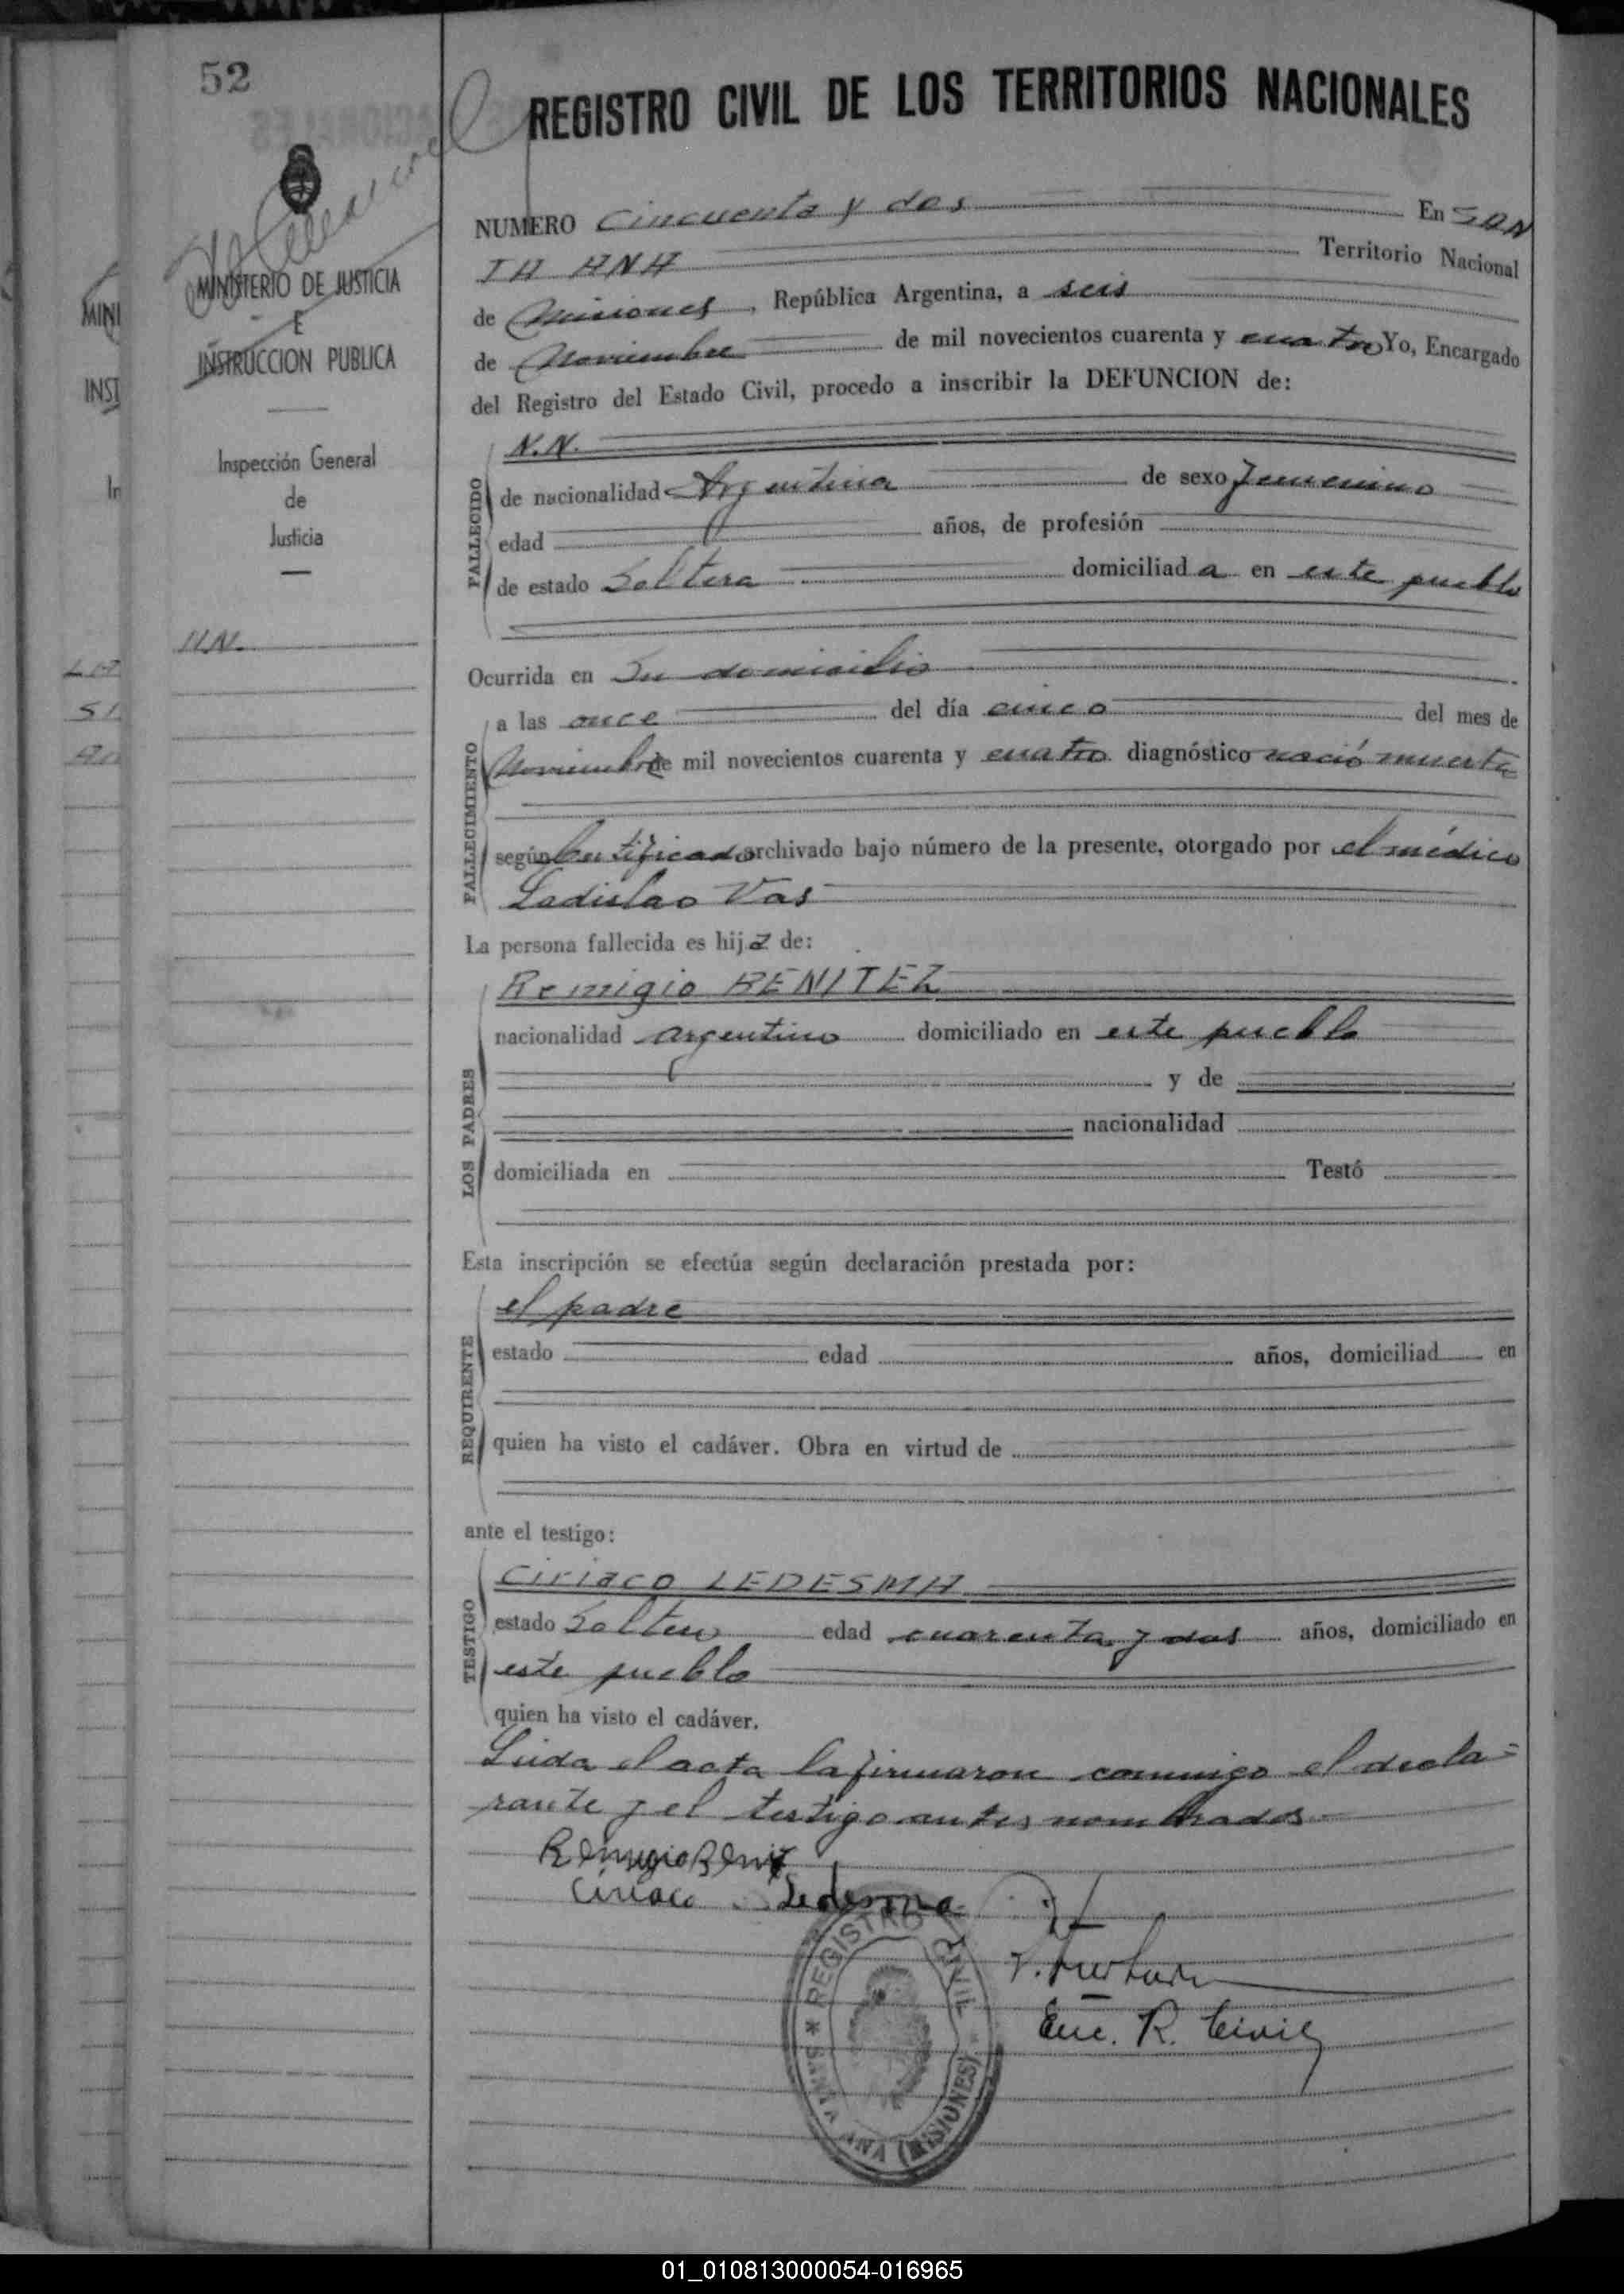 52
REGISTRO CIVIL DE LOS TERRITORIOS NACIONALES
MINISTERIO DE JUSTICIA
E
INSTRUCCION PUBLICA
Inspección General
de
Justicia
N.N.
NUMERO Cincuenta y dos En SAN
TA ANA Territorio Nacional
de Misiones, República Argentina, a seis
de Noviembre de mil novecientos cuarenta y cuatro Yo, Encargado
del Registro del Estado Civil, procedo a inscribir la DEFUNCION de:
N.N.
FALLECIDO
de nacionalidad Argentina de sexo femenino
edad años, de profesión
de estado Soltera domiciliad a en este pueblo
Ocurrida en Su domicilio
a las once del día cinco del mes de
FALLECIMIENTO
Noviembre de mil novecientos cuarenta y cuatro diagnóstico nació muerta
según Certificado archivado bajo número de la presente, otorgado por el médico
Ladislao Vas
La persona fallecida es hija de:
Remigio BENITEZ
nacionalidad argentino domiciliado en este pueblo
y de
LOS PADRES
nacionalidad
domiciliada en Testó
Esta inscripción se efectúa según declaración prestada por:
el padre
REQUIRENTE
estado edad años, domiciliad en
quien ha visto el cadáver. Obra en virtud de
ante el testigo:
Ciriaco LEDESMA
TESTIGO
estado Soltero edad cuarenta y dos años, domiciliado en
este pueblo
quien ha visto el cadáver.
Leida el acta la firmaron conmigo el decla=
rante y el testigo antes nombrados
Remigio Benit
Ciriaco Ledesma
REGISTRO CIVIL
SANTA ANA (MISIONES)
Enc. R. Civil
MINI
INST
In
01_010813000054-016965